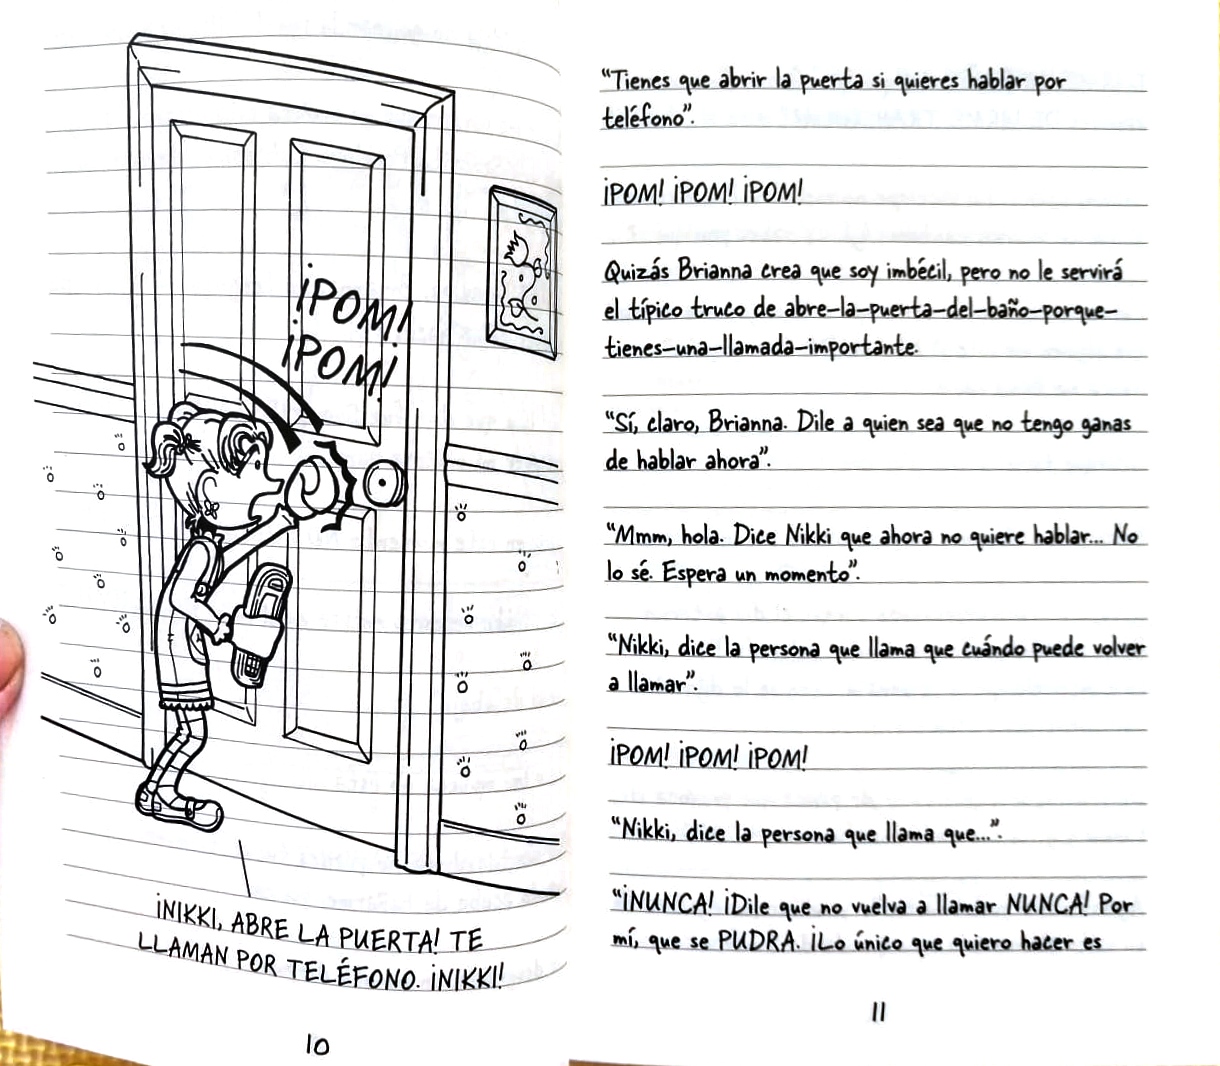 ¡POM!
¡POM!
¡NIKKI, ABRE LA PUERTA! TE
LLAMAN POR TELÉFONO. ¡NIKKI!
10
“Tienes que abrir la puerta si quieres hablar por
teléfono”.
¡POM! ¡POM! ¡POM!
Quizás Brianna crea que soy imbécil, pero no le servirá
el típico truco de abre-la-puerta-del-baño-porque-
tienes-una-llamada-importante.
“Sí, claro, Brianna. Dile a quien sea que no tengo ganas
de hablar ahora”.
“Mmm, hola. Dice Nikki que ahora no quiere hablar... No
lo sé. Espera un momento”.
“Nikki, dice la persona que llama que cuándo puede volver
a llamar”.
¡POM! ¡POM! ¡POM!
“Nikki, dice la persona que llama que...”.
“¡NUNCA! ¡Dile que no vuelva a llamar NUNCA! Por
mí, que se PUDRA. ¡Lo único que quiero hacer es
11